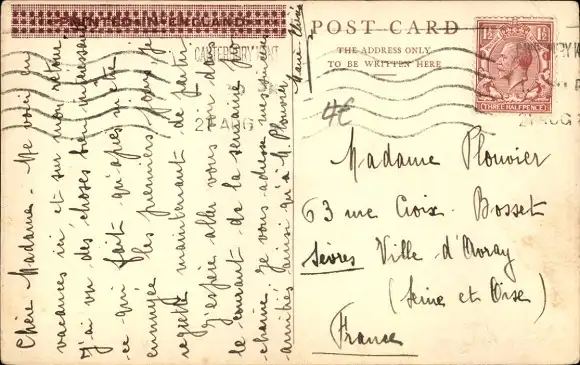 PRINTED IN ENGLAND
POST CARD
THE ADDRESS ONLY
TO BE WRITTEN HERE
CANTERBURY KENT
21 AUG
21 AUG
1½
1½
THREE HALFPENCE
4€
Chère Madame - Me voici en
vacances ici et sur mon retour.
J'ai vu des choses bien intéressantes
ce qui fait qu'après m'être
ennuyée les premiers jours je
regrette maintenant de partir
J'espère aller vous voir dans
le courant de la semaine pro-
chaine. Je vous adresse mes meilleures
amitiés ainsi qu'à M. Plouvier
Madame Plouvier
63 rue Croix-Bosset
Sèvres Ville-d'Avray
(Seine et Oise)
France